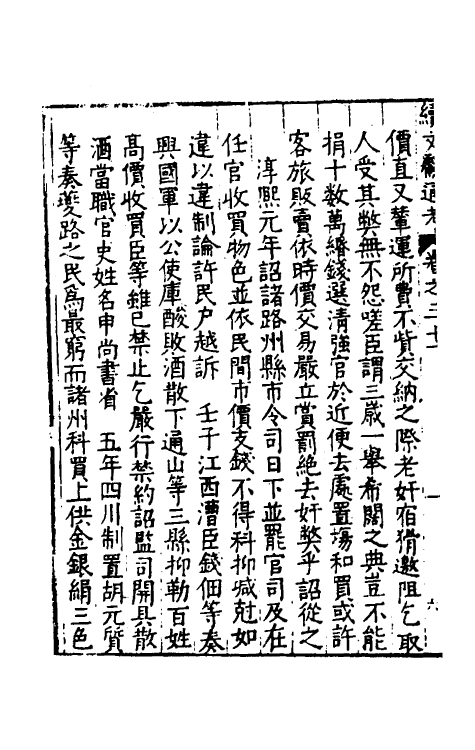 續文獻通考 卷之三十 六
價直又輦運所費不貲交納之際老奸宿猾邀阻乞取
人受其弊無不怨嗟臣謂三歲一舉希闊之典豈不能
捐十數萬緡錢選清強官於近便去處置場和買或許
客旅販賣依時價交易嚴立賞罰絶去奸弊乎詔從之
淳熙元年詔諸路州縣市令司日下並罷官司及在
任官收買物色並依民間市價支錢不得科抑减尅如
違以違制論許民户越訴 壬子江西漕臣錢佃等奏
興國軍以公使庫酸敗酒散下通山等三縣抑勒百姓
高價收買臣等雖已禁止乞嚴行禁約詔監司開具散
酒當職官吏姓名申尚書省 五年四川制置胡元質
等奏夔路之民爲最窮而諸州科買上供金銀絹三色